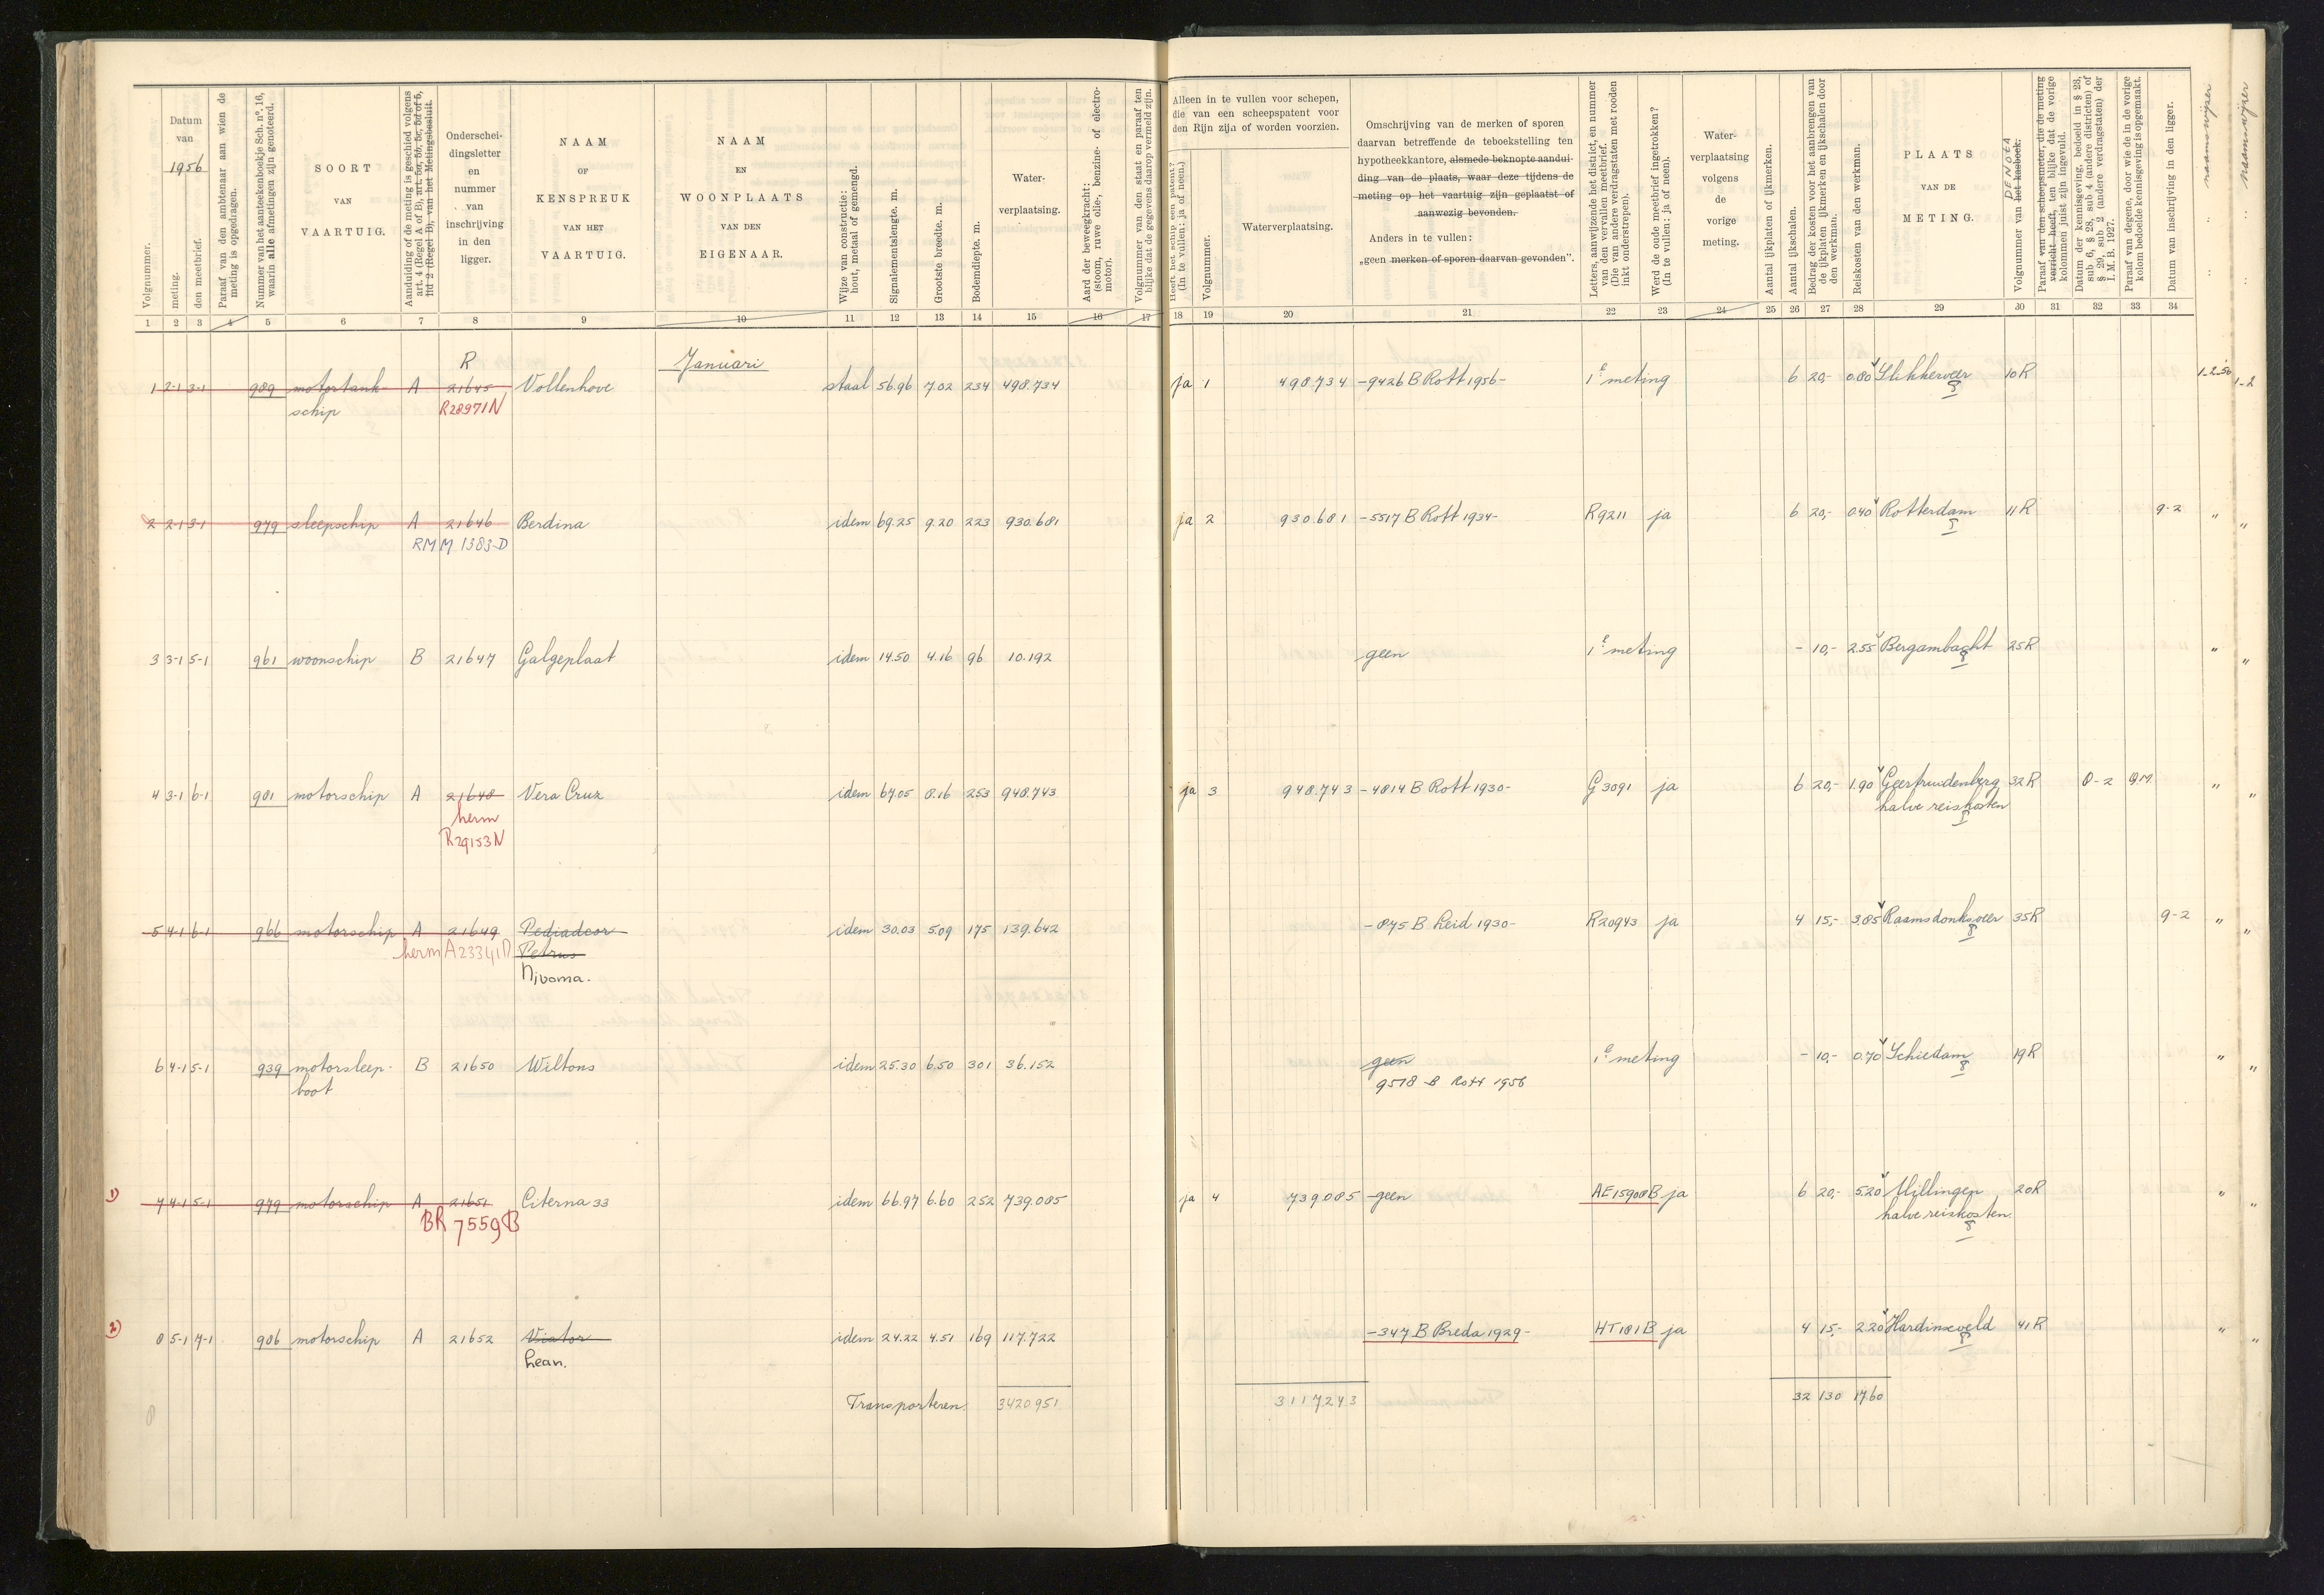 Volgnummer.
Datum van 1956
meting.
den meetbrief.
Paraaf van den ambtenaar aan wien de meting is opgedragen.
Nummer van het aanteekenboekje Sch. nº. 16, waarin alle afmetingen zijn genoteerd.
SOORT VAN VAARTUIG.
Aanduiding of de meting is geschied volgens art. 4 (Regel A of B), art. 5a, 5b, 5c, 5d of 5, lid 2 (Regel B), van het Metingsbesluit.
Onderscheidingsletter en nummer van inschrijving in den ligger.
NAAM OF KENSPREUK VAN HET VAARTUIG.
NAAM EN WOONPLAATS VAN DEN EIGENAAR.
Wijze van constructie: hout, metaal of gemengd.
Signalementslengte. m.
Grootste breedte. m.
Bodemdiepte. m.
Waterverplaatsing.
Aard der beweegkracht: (stoom, ruwe olie-, benzine- of electromotor).
Volgnummer van den staat en paraaf ten blijke dat de gegevens daarop vermeld zijn.
Alleen in te vullen voor schepen, die van een scheepspatent voor den Rijn zijn of worden voorzien.
Heeft het schip een patent? (In te vullen: ja of neen.)
Volgnummer.
Waterverplaatsing.
Omschrijving van de merken of sporen daarvan betreffende de teboekstelling ten hypotheekkantore, alsmede beknopte aanduiding van de plaats, waar deze tijdens de meting op het vaartuig zijn geplaatst of aanwezig bevonden.
Anders in te vullen:
„geen merken of sporen daarvan gevonden”.
Letters, aanwijzende het district, en nummer van den vervallen meetbrief. (Die van andere verdragstaten met rooden inkt onderstrepen).
Werd de oude meetbrief ingetrokken? (In te vullen: ja of neen).
Waterverplaatsing volgens de vorige meting.
Aantal ijkplaten of ijkmerken.
Aantal ijkschalen.
Bedrag der kosten voor het aanbrengen van de ijkplaten ijkmerken en ijkschalen door den werkman.
Reiskosten van den werkman.
PLAATS VAN DE METING.
Volgnummer van het kasboek. DE NOTA
Paraaf van den scheepsmeter, die de meting verricht heeft, ten blijke dat de vorige kolommen juist zijn ingevuld.
Datum der kennisgeving, bedoeld in § 23, sub 6, § 28, sub 4 (andere districten) of § 29, sub 2 (andere verdragstaten) der I. M. B. 1927.
Paraaf van degene, door wie de in de vorige kolom bedoelde kennisgeving is opgemaakt.
Datum van inschrijving in den ligger.
naamwijzer
naamwijzer
1 2 3 4 5 6 7 8 9 10 11 12 13 14 15 16 17 18 19 20 21 22 23 24 25 26 27 28 29 30 31 32 33 34
Januari
R
1 2-1 3-1 989 motortank- A 21645 Vollenhove staal 56.96 7.02 234 498.734 ja 1 498.734 -9426 B Rott 1956- 1e meting 6 20,- 0.80 Slikkerveer 10R 1-2-56 1-2
schip R28971N
2 2-1 3-1 979 sleepschip A 21646 Berdina idem 69.25 9.20 223 930.681 ja 2 930.681 -5517 B Rott 1934- R9211 ja 6 20,- 0.40 Rotterdam 11R 9-2 " "
RMM 1383-D
3 3-1 5-1 961 woonschip B 21647 Galgeplaat idem 14.50 4.16 96 10.192 geen 1e meting - 10,- 2.55 Bergambacht 25R " "
4 3-1 6-1 981 motorschip A 21648 Vera Cruz idem 67.05 8.16 253 948.743 ja 3 948.743 -4814 B Rott 1930- G3091 ja 6 20,- 1.90 Geertruidenberg 32R 8-2 " "
herm halve reiskosten
R29153N
5 4-1 6-1 966 motorschip A 21649 Pediadcor idem 30.03 5.09 175 139.642 -875 B Leid 1930- R20943 ja 4 15,- 3.85 Raamsdonksveer 35R 9-2 " "
herm A23341D Petrus
Nivoma.
6 4-1 5-1 939 motorsleep- B 21650 Wiltons idem 25.30 6.50 301 36.152 geen 1e meting - 10,- 0.70 Schiedam 19R " "
boot 9578 B Rott 1956
1) 7 4-1 5-1 979 motorschip A 21651 Citerna 33 idem 66.97 6.60 252 739.085 ja 4 739.085 -geen AE15908B ja 6 20,- 5.20 Millingen 20R " "
BR 7559B halve reiskosten.
2) 8 5-1 7-1 986 motorschip A 21652 Viator idem 24.22 4.51 169 117.722 -347 B Breda 1929- HT181B ja 4 15,- 2.20 Hardinxveld 41R " "
Lean.
8 Transporteren 3420951 3117.243 32 130 17.60